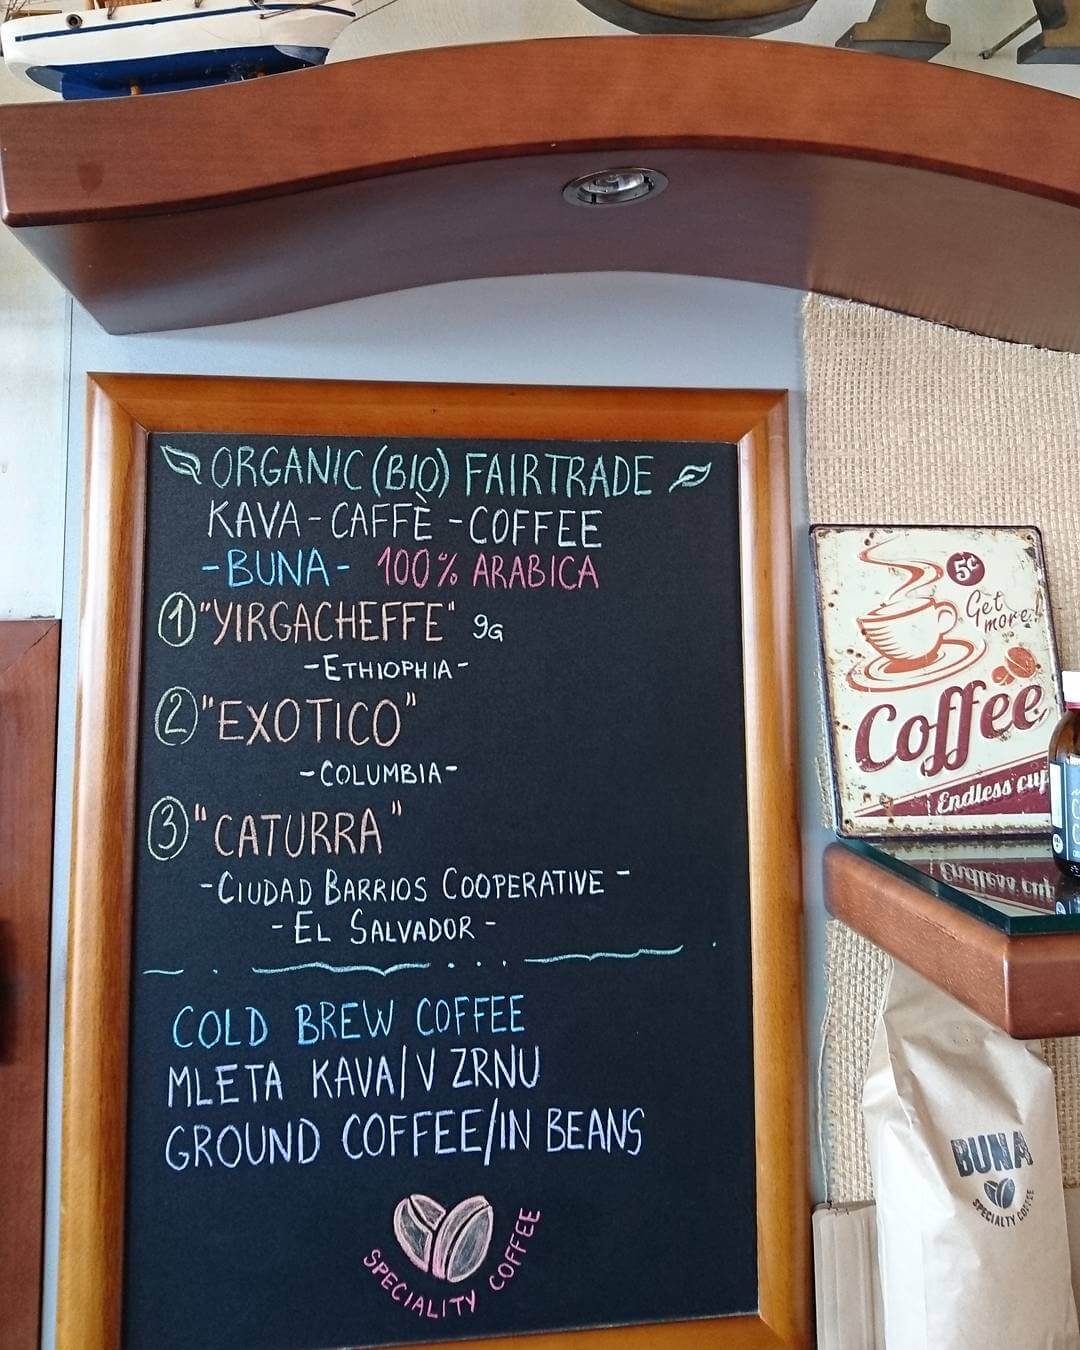 ORGANIC (BIO) FAIRTRADE
KAVA - CAFFÈ - COFFEE
- BUNA - 100% ARABICA
1 "YIRGACHEFFE" 9G
- ETHIOPHIA -
2 "EXOTICO"
- COLUMBIA -
3 "CATURRA"
- CIUDAD BARRIOS COOPERATIVE -
- EL SALVADOR -
COLD BREW COFFEE
MLETA KAVA/V ZRNU
GROUND COFFEE/IN BEANS
SPECIALITY COFFEE
5¢
Get
more!
Coffee
Endless cup
Endless cup
BUNA
SPECIALTY COFFEE